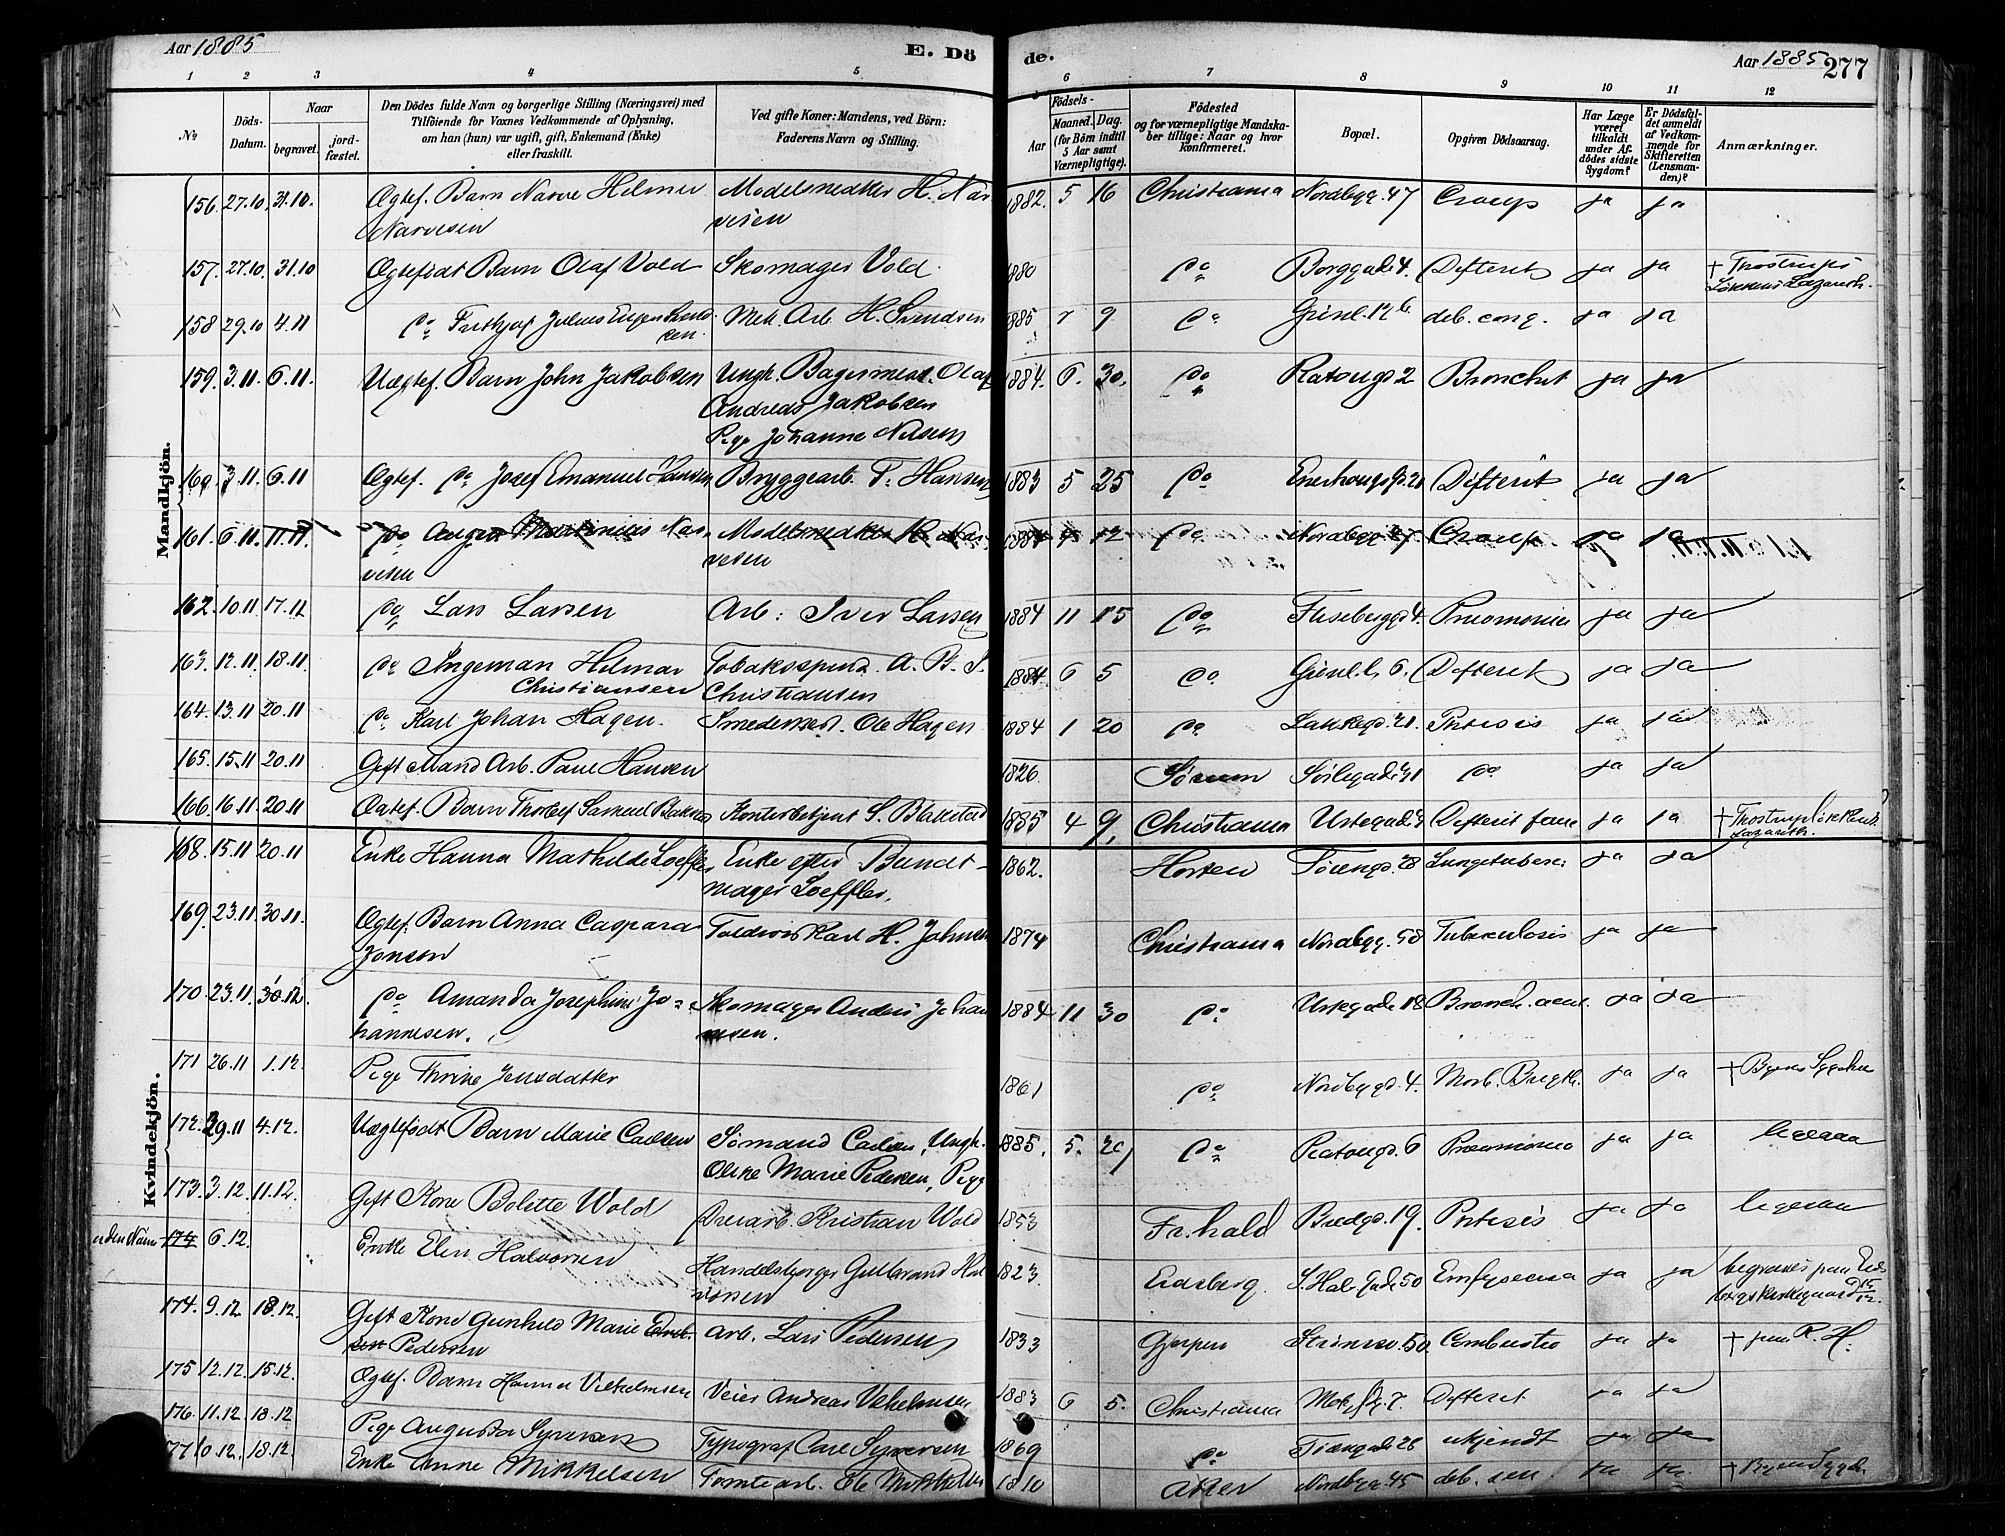 Aar 1885
E. Dö
de.
Aar 1885
277
1 2 3 4 5 6 7 8 9 10 11 12
No
Döds-Datum.
Naar
begravet.
jord-fæstet.
Den Dödes fulde Navn og borgerlige Stilling (Næringsvei) med
Tilföiende for Voxnes Vedkommende af Oplysning,
om han (hun) var ugift, gift, Enkemand (Enke)
eller fraskilt.
Ved gifte Koner: Mandens, ved Börn:
Faderens Navn og Stilling.
Födsels-
Aar
Maaned. Dag.
(for Börn indtil
5 Aar samt
Værnepligtige).
Födested
og for værnepligtige Mandska-
ber tillige: Naar og hvor
konfirmeret.
Bopæl.
Opgiven Dödsaarsag.
Har Læge
været
tilkaldt
under Af-
dödes sidste
Sygdom?
Er Dödsfal-
det anmeldt
af Vedkom-
mende for
Skifteretten
(Lensman-
den)?
Anmærkninger.
Mandkjön.
156. 27.10. 31.10. Ægtef. Barn Narve Hilmer Modelsnedker H. Nar 1882. 5 16 Christiania Nordbyg. 47 Croup ja ja
Narvesen vesen
157. 27.10. 31.10 Ægtefödt Barn Olaf Vold Skomager Vold. 1880 do Borggade 4. Difterit ja ja + Thostrups
Løkkens Lazareth.
158 29.10 4.11 do Frithjof Julius Eugen Mek. Arb. H. Svendsen 1885 9 do Grönl. 12 b. deb. cong. ja ja
159. 3.11. 6.11. Uægtef. Barn John Jakobsen Ungk. Bagersvend. Olaf 1884. 6. 30. do Ratougd 2 Bronchit ja ja
Andreas Jakobsen
Pige Johanne Nilsen
160 3.11. 6.11 Ægtef. do Josef Emanuel Hansen Bryggearb. T. Hansen 1883 5 25 do Enerhougsg. 21 Difterit ja ja
161. 6.11. 11.11. do August Martinius Nar- Modelsnedker H. Nar- 1884 9 12 do Nordbyg. 47. Croup ja ja
vesen vesen
162. 10.11 17.11 do Lars Larsen Arb: Iver Larsen 1884 11 15 do Flisebergg. 4. Pneomonia ja ja
163. 12.11 18.11 do Ingeman Hilmar Tobaksspind. A. B. S. 1884. 6 5 do Grönl. l. 6. Difterit ja ja
Christiansen Christiansen
164. 13.11 20.11 do Karl Johan Hagen. Smedesvend. Ole Hagen 1884 1 20 do Lakkegd. 21. Phtisis ja ja
165. 15.11 20.11 Gift Mand Arb. Paul Hansen 1826. Sörum Sörlegade 21 do ja ja
166. 16.11 20.11 Ægtef. Barn Thorleif Samuel Kontorbetjent S. Blakstad 1885 4 9. Christiania Urtegade Difterit ja ja + Thostrupløkkens
Lazareth.
Kvindekjön.
168. 15.11 20.11 Enke Hanna Mathilde Loeffler Enke efter Bundt- 1862. Horten Töiengd. 28 Lungetuberc. ja ja
mager Loeffler.
169. 23.11. 30.11. Ægtef. Barn Anna Caspara Toldvis Karl H. Johnsen 1874 Christiania Nordbyg. 58 Tuberkulosis ja ja
Jonsen
170 23.11 30.12. do Amanda Josephine Jo- Skomager Anders Johan 1884 11 30 do Urtegade 18 Bronch. acut. ja ja
hannesen. nesen.
171 26.11 1.12. Pige Thrine Jensdatter 1861 do Nordbygd. 4. Morb. Brigth. ja ja + Byens Sygehus
172. 29.11 4.12. Uægtefödt Barn Marie Carlsen Sømand Carlsen, Ungk. 1885. 5. do Ratougd. 6 Pneumonia ja ja ligesaa
Olike Marie Pedersen, Pige
173. 3.12. 11.12. Gift Kone Bolitte Wold Arb. Kristian Wold 1853 Fr.hald Bredgd. 19. Phtisis ja ja ligesaa
174 6.12. Enke Elen Halvorsen Handelsborger Gulbrand Hal 1823. Eidsberg. Gade 50 Emfysema ja ja begraves paa Eids
vorsen bergs Kirkegaard 15/12.
174. 9.12 18.12. Gift Kone Gunhild Marie Arb. Lars Pedersen 1833 Gjerpen Strömsv. 50. Combustio ja ja + paa R. H.
Pedersen
175 12.12. 15.12. Ægtef. Barn Hanna Vilhelmsen Veier Andreas Vilhelmsen 1883 6 5. Christiania Difterit ja ja
176. 11.12 18.12 Pige Augusta Syversen Typograf Carl Syversen 1869 do Töiengade 26 ukjendt ja ja
177 10.12. 18.12. Enke Anne Mikkelsen Tomtearb. Ole Mikkelsen 1810 Aker Nordbyg. 45 deb. sen. ja ja + Byens Sygeh.